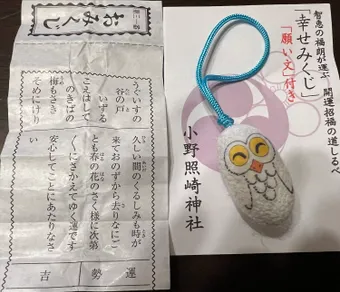 おみくじ
うぐいすの
谷の戸
いずる
こえはして
のきばの
梅もさき
そめにけり
久しい間のくるしみも時が
来ておのずから去りなにご
とも春の花のさく様に次第
〳〵にさかえてゆく運です
安心してことにあたりなさ
い
運勢 吉
智恵の福朗が運ぶ 開運招福の道しるべ
「幸せみくじ」
「願い文」付き
小野照崎神社